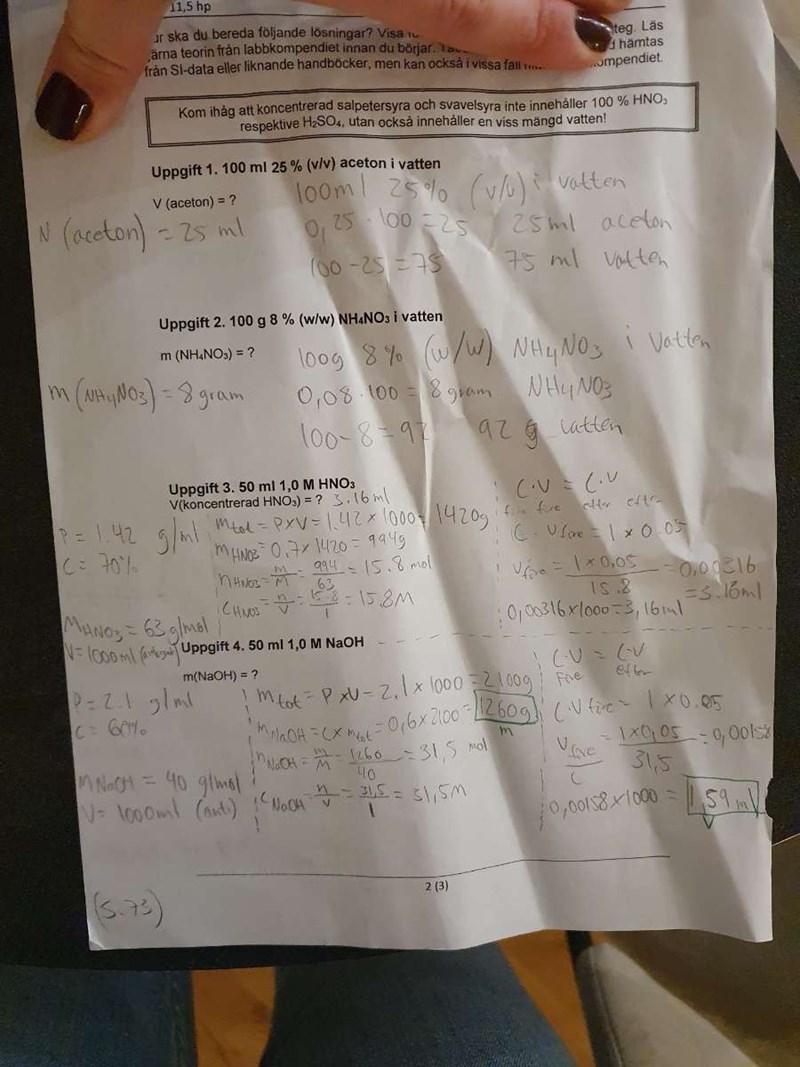 11,5 hp
ur ska du bereda följande lösningar? Visa
teg. Läs
ärna teorin från labbkompendiet innan du börjar.
hämtas
från SI-data eller liknande handböcker, men kan också i vissa fall
ompendiet.
Kom ihåg att koncentrerad salpetersyra och svavelsyra inte innehåller 100 % HNO₃
respektive H₂SO₄, utan också innehåller en viss mängd vatten!
Uppgift 1. 100 ml 25 % (v/v) aceton i vatten
100ml 25% (v/v) i vatten
V (aceton) = ?
N (aceton) = 25 ml
0,25 · 100 = 25 25ml aceton
100 - 25 = 75 75 ml vatten
Uppgift 2. 100 g 8 % (w/w) NH₄NO₃ i vatten
m (NH₄NO₃) = ?
100g 8% (w/w) NH4NO3 i vatten
m (NH4NO3) = 8 gram
0,08 · 100 = 8 gram NH4NO3
100 - 8 = 92 92 g vatten
Uppgift 3. 50 ml 1,0 M HNO₃
V(koncentrerad HNO₃) = ? 3.16 ml
P = 1.42 g/ml
C = 70%
MHNO3 = 63 g/mol
V = 1000 ml
mtot = P×V = 1.42 × 1000 = 1420g
mHNO3 = 0,7 × 1420 = 994g
nHNO3 = m/M = 994/63 = 15.8 mol
CHNO3 = n/V = 15.8/1 = 15.8M
C·V = C·V
före före efter efter
C · Vföre = 1 × 0.05
Vföre = 1×0,05/15.8 = 0,00316
= 3.16ml
0,00316×1000 = 3,16ml
Uppgift 4. 50 ml 1,0 M NaOH
m(NaOH) = ?
P = 2.1 g/ml
C = 60%
MNaOH = 40 g/mol
V = 1000ml (anti)
mtot = P×V = 2,1 × 1000 = 2100g
mNaOH = C× mtot = 0,6×2100 = 1260g
m
nNaOH = m/M = 1260/40 = 31,5 mol
CNaOH = n/V = 31,5/1 = 31,5M
C·V = C·V
före efter
C·Vföre = 1 × 0.05
Vföre = 1×0,05/31,5 = 0,00158
C
0,00158×1000 = 1,59 ml
V
2 (3)
(S.73)